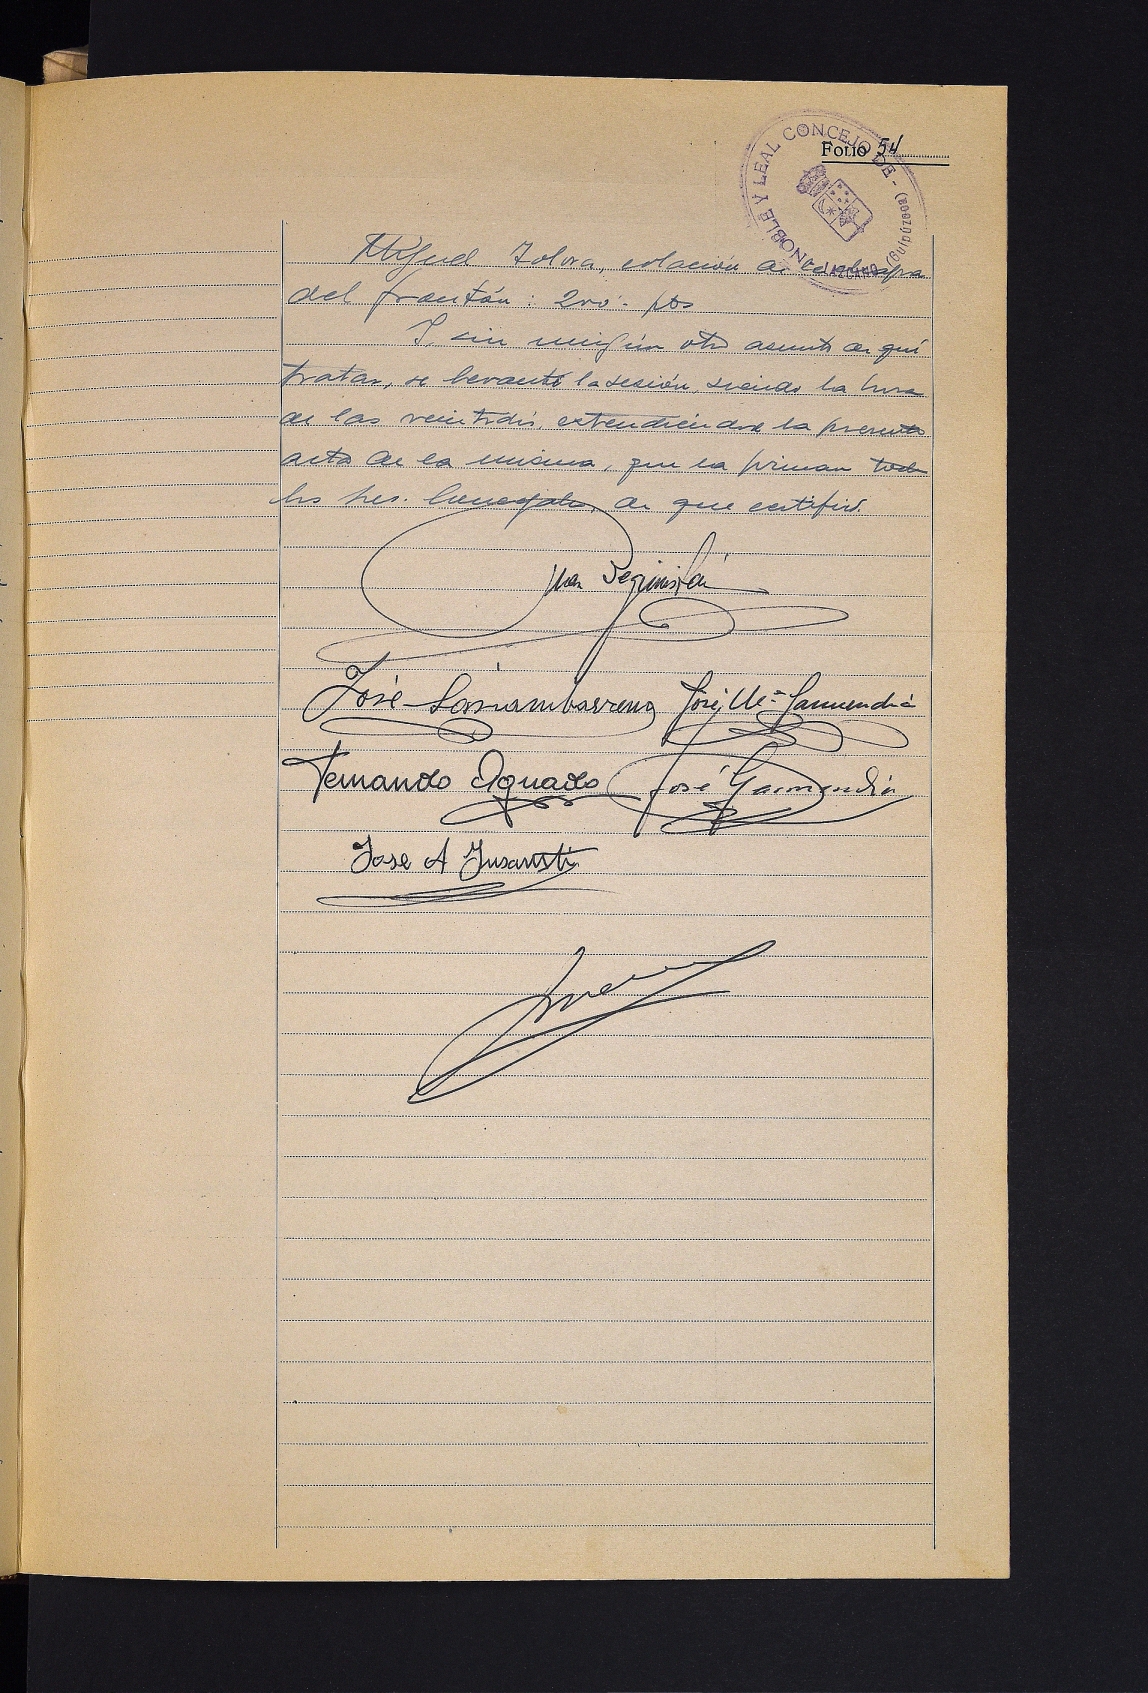 Folio 54
NOBLE Y LEAL CONCEJO DE - LAZCANO (GUIPUZCOA)
Miguel Tolosa, colación de
del frontón : 200'- pts
Y, sin ningún otro asunto de qué
tratar, se levantó la sesión, siendo la hora
de las veintidós, extendiéndose la presente
acta de la misma, que la firman todos
los sres. Concejales, de que certifico.
José
José Mª Garmendia
Fernando Aguado José Garmendia
Jose A Insausti